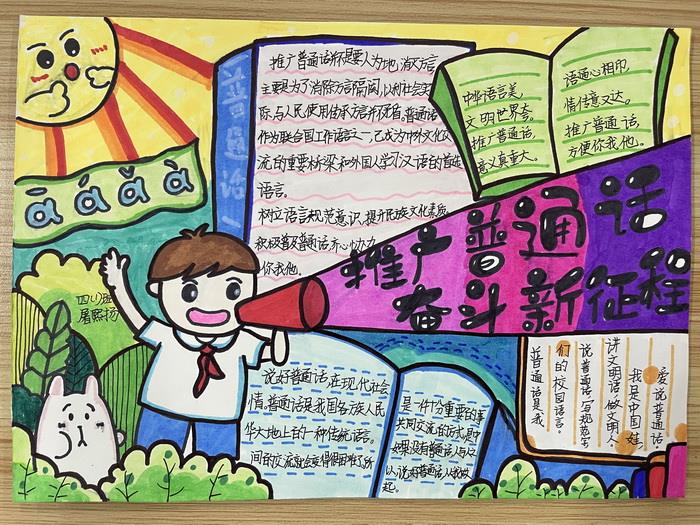 推广普通话
奋斗新征程
ā á ǎ à
普通话
推广普通话并不是要人为地消灭方言,
主要是为了消除方言隔阂,以利社会交
际,与人民使用传承方言并不矛盾。普通话
作为联合国工作语言之一,已成为中外文化交
流的重要桥梁和外国人学习汉语的首选
语言。
树立语言规范意识,提升民族文化素质
积极普及普通话齐心协力
你我他。
中华语言美,
文明世界夸。
推广普通话,
意义真重大。
语通心相印,
情传意又达。
推广普通话,
方便你我他。
四(1)班
屠熙扬
说好普通话,在现代社会
情,普通话是我国各族人民
华大地上的一种传统语言。
是一件十分重要的事
共同交流的方式,是中
如果没有普通话,人与人
以,说好普通话,从我做
起。
爱说普通话。
我是中国娃,
讲文明话,做文明人。
说普通话,写规范字
们的校园语言。
普通话是我